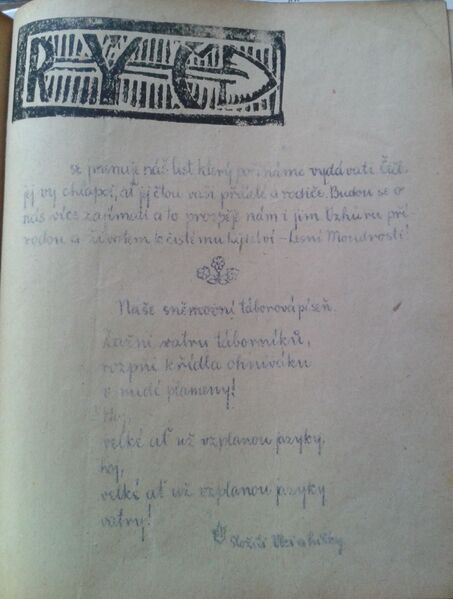 RYČ
se jmenuje náš list který počínáme vydávati. Čtě-
jej vy chlapci, ať jej čtou vaši přátelé a rodiče. Budou se o
nás více zajímati a to prospěje nám i jim. Vzhůru pří-
rodou a životem k čistému lidství – Lesní Moudrosti!
Naše sněmovní táborová píseň.
Zažni vatru táborníků,
rozpni křídla ohniváku
v rudé plameny!
Hoj,
velké ať už vzplanou jazyky.
hoj,
velké ať už vzplanou jazyky
vatry!
složil